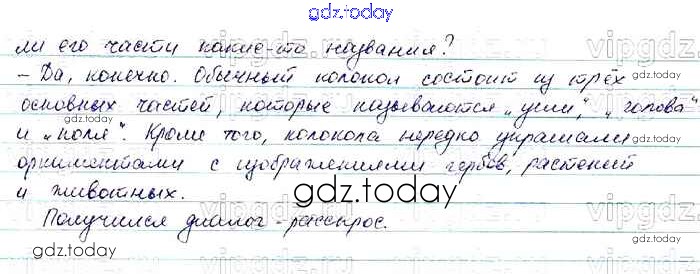 gdz.today
ли его части какие-то названия?
– Да, конечно. Обычный колокол состоит из трёх
основных частей, которые называются „уши", „голова"
и „поля". Кроме того, колокола нередко украшали
орнаментами с изображениями гербов, растений
и животных.
gdz.today
Получился диалог-расспрос.